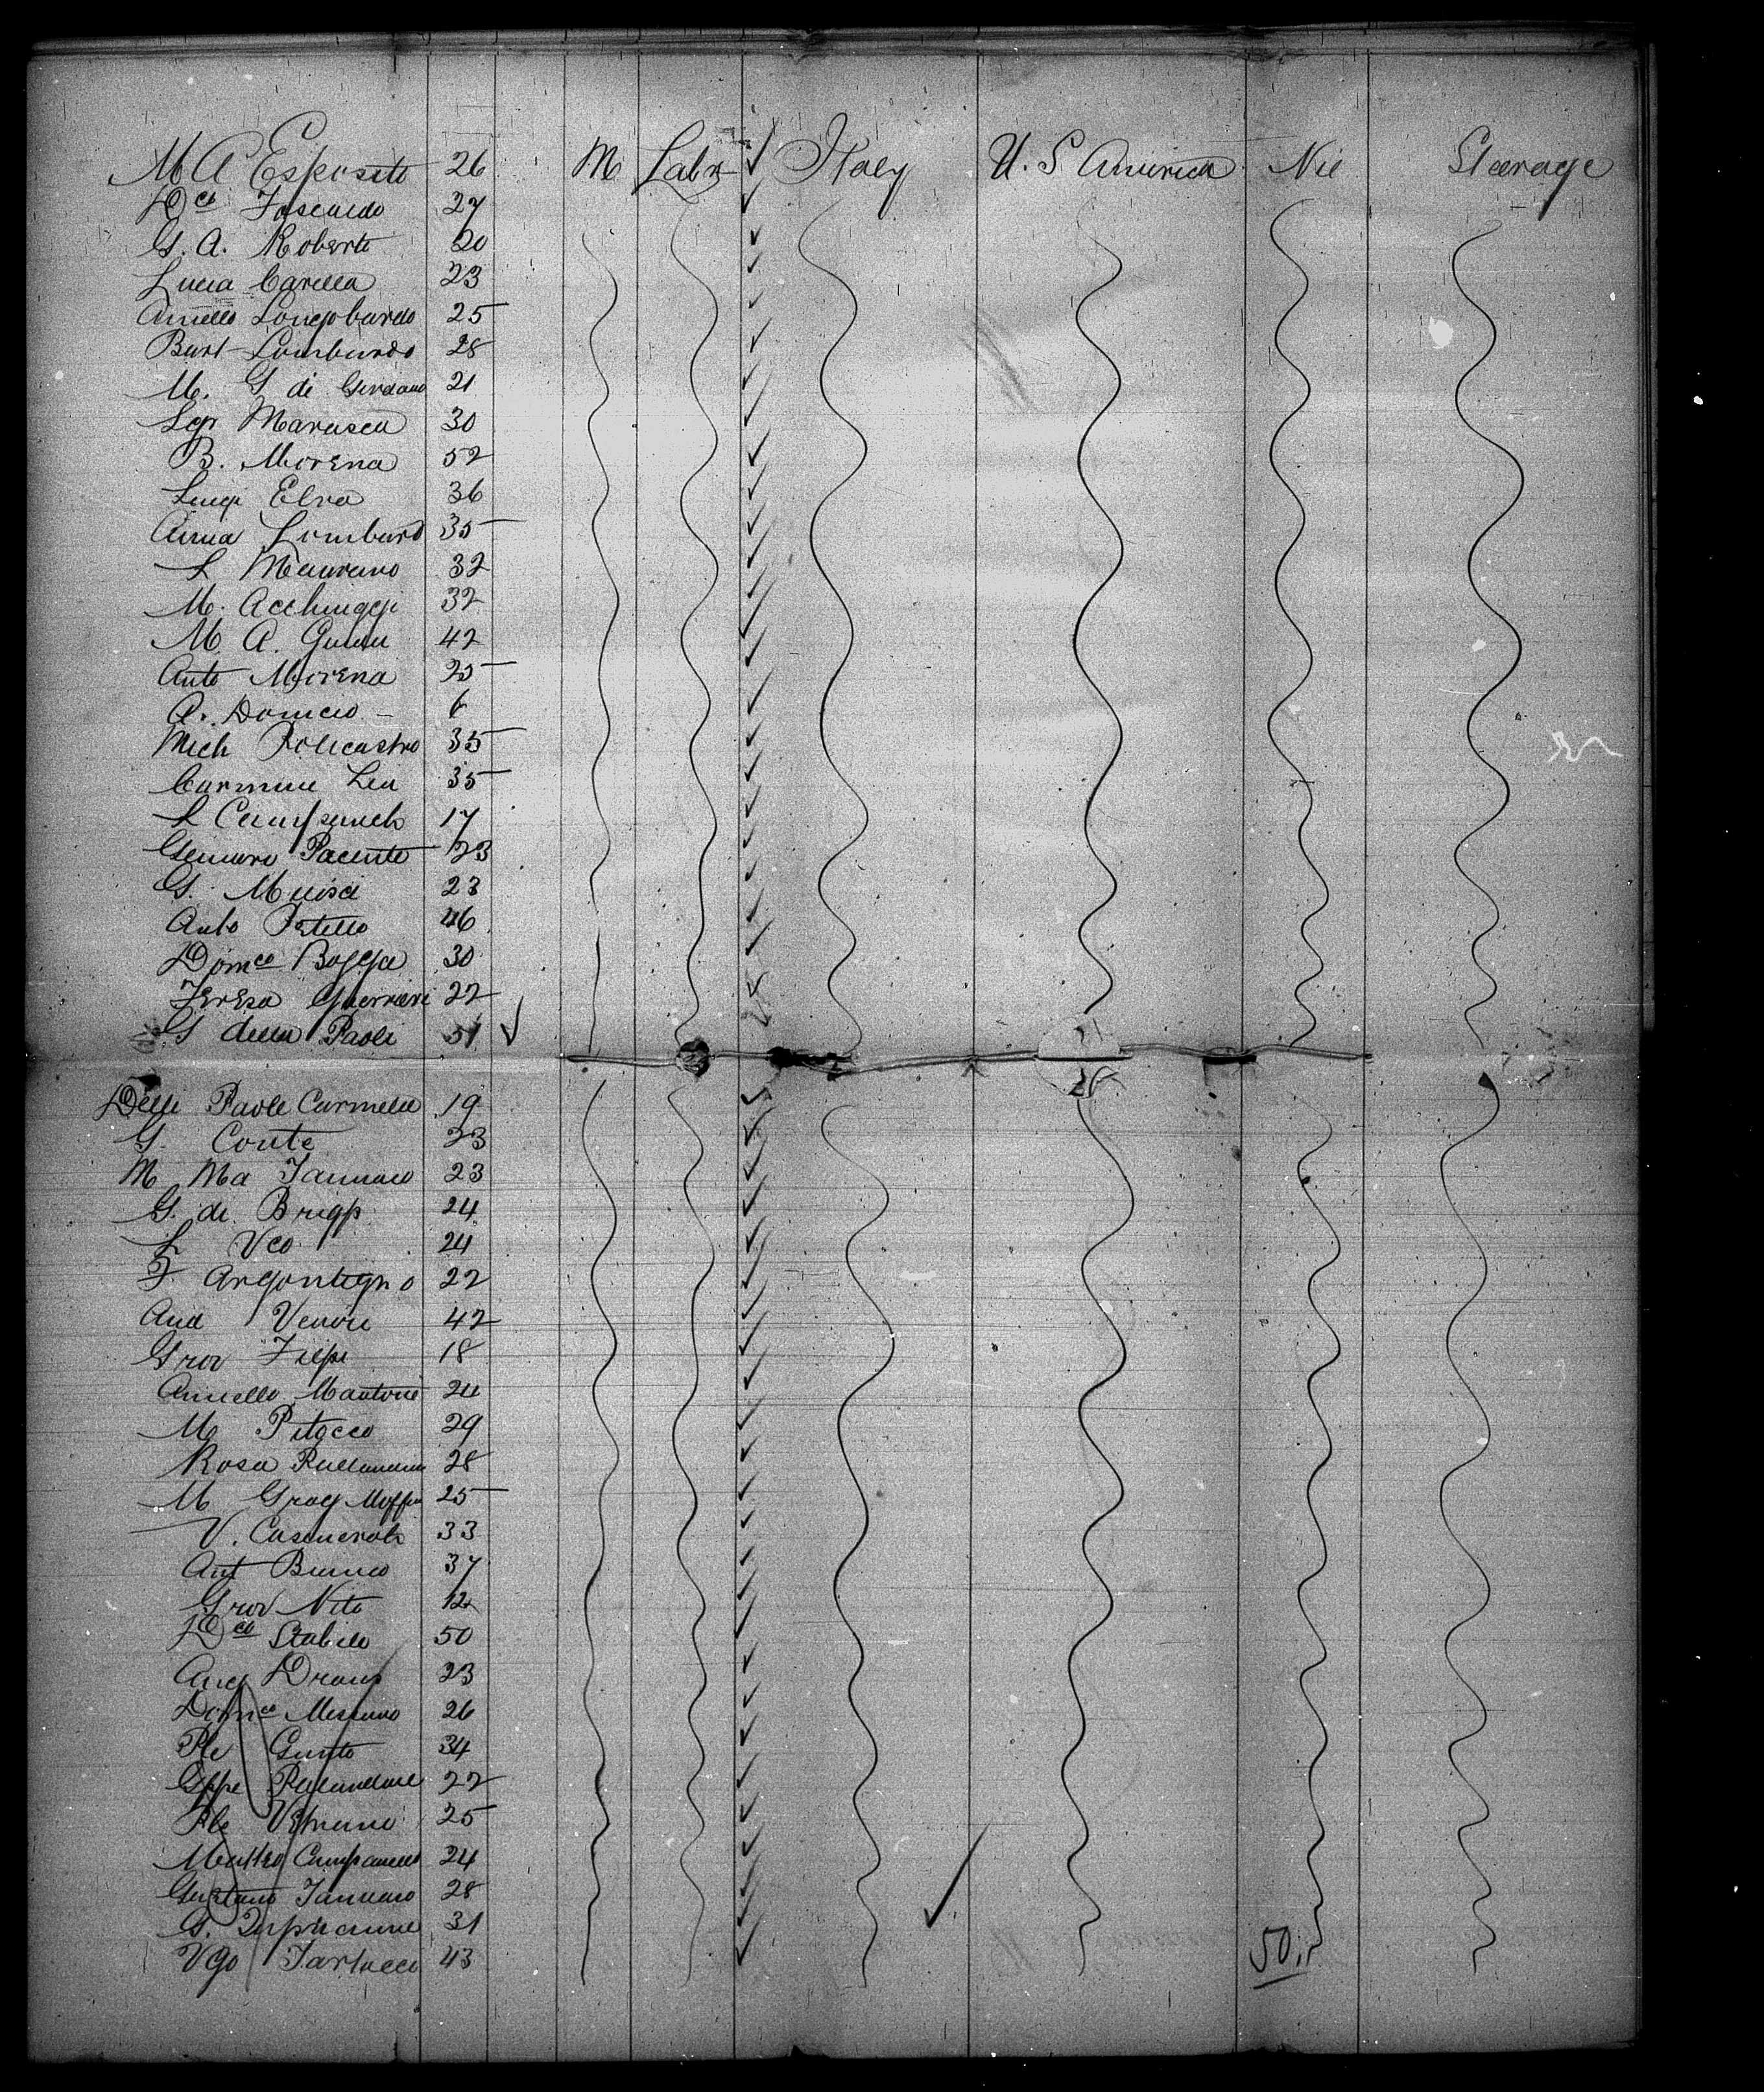 M A Esposito 26 M Labr Italy U. S America Nil Steerage
Dco Toscardo 27
G. A. Roberto 20
Lucia Carella 23
Aniello Longobardo 25
Bart Lombardo 28
M. G di Giordano 21
Marasca 30
B. Morena 52
Luigi Elva 36
Anna Lombard 35
L Maurano 32
M. 32
M. A. 42
Anto Morena 25
A. Domcio 6
Mich Policastro 35
Carmine Leu 35
L Campanelo 17
Genuaro Pacente 23
G. Muisci 23
Anto Petello 46
Domco Boffa 30
Teresa Guerrieri 22
G della Paoli 31
Delli Paole Carmela 19
G. Conte 23
M Ma Iannaco 23
G. di Brigp 24
L Vco 24
F. Argontegno 22
And 42
Giov Filpi 18
Aniello Mantone 24
M Pitocco 29
Rosa 28
M Grog 25
V. 33
Ant Bianco 37
Giov Nito 12
Dco Stabile 50
Ang 23
Domco Messano 26
Ple Giunto 34
Gppe 22
Ple 25
Matteo Campanello 24
Gaetano Iannaco 28
G. 31
Vgo Tartacci 43
50